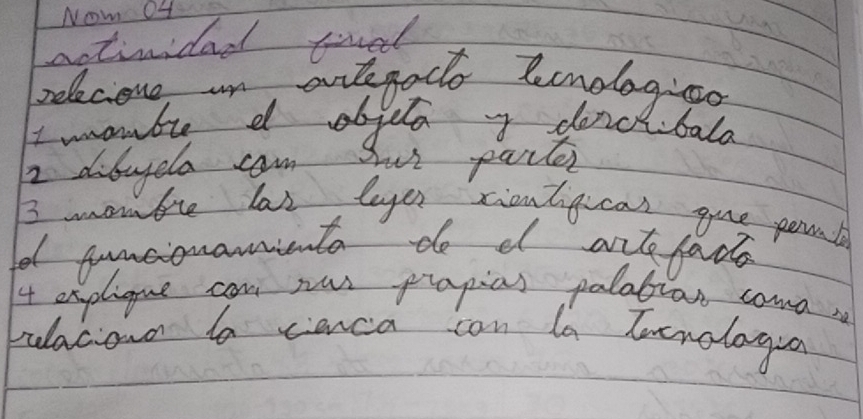 Nom 04
actividad final
selecione un artefacto tecnologico
1 nombre el objeto y descríbala
2 dibujela com sus partes
3 nombre las leyes cientificas que permite
el funcionamiento de el artefacto
4 explique con sus propias palabras como se
relaciona la ciencia con la Tecnologia